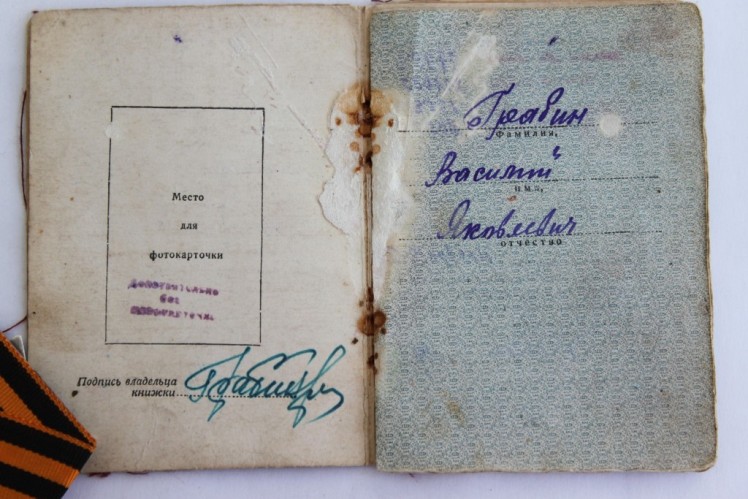 Место
для
фотокарточки
Действительно
без
фотокарточки
Подпись владельца
книжки
Грабин
фамилия,
Василий
имя,
Яковлевич
отчество